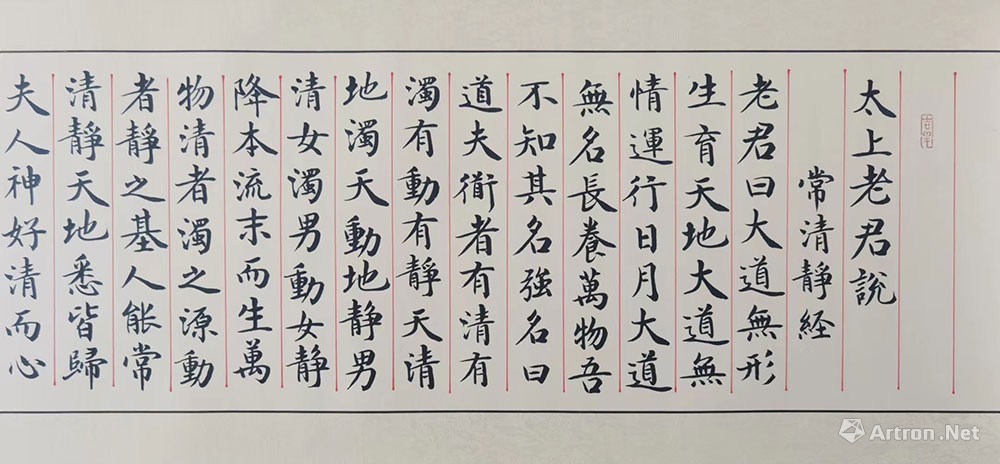 太上老君說
常清靜経
老君曰大道無形
生育天地大道無
情運行日月大道
無名長養萬物吾
不知其名強名曰
道夫衜者有清有
濁有動有靜天清
地濁天動地静男
清女濁男動女静
降本流末而生萬
物清者濁之源動
者靜之基人能常
清靜天地悉皆歸
夫人神好清而心
Artron.Net